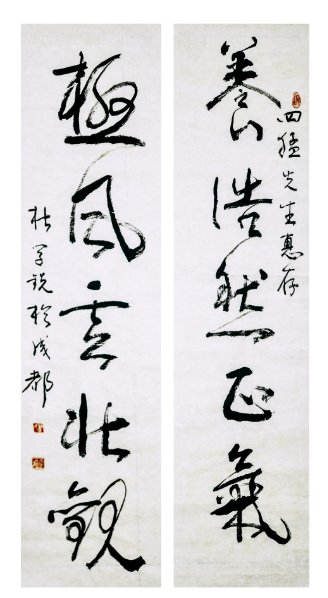 養浩然正氣
四猛先生惠存
極風雲壯觀
杜学锐於成都